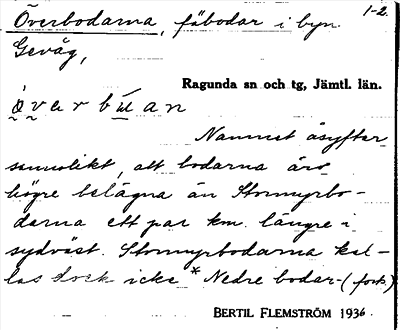 1-2.
Överbodarna, fäbodar i byn
Gevåg,
Ragunda sn och tg, Jämtl. län.
ò̤v a r b ú a n
Namnet åsyftar
sannolikt, att bodarna äro
högre belägna än Stormyrbo-
darna ett par km. längre i
sydväst. Stormyrbodarna kal-
las dock icke *Nedre bodar-(forts.)
BERTIL FLEMSTRÖM 1936